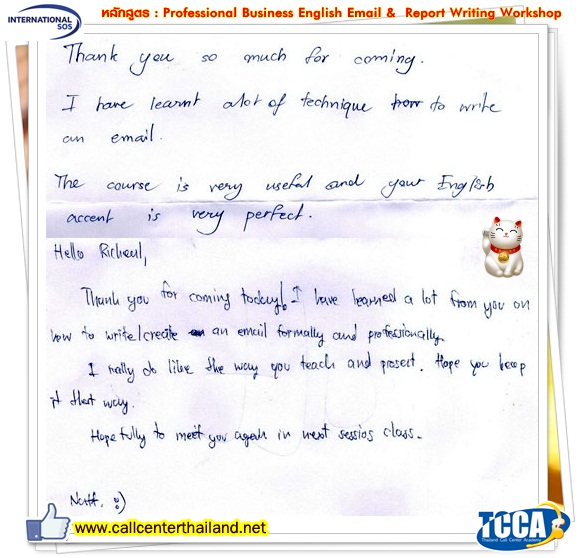 INTERNATIONAL
SOS
หลักสูตร : Professional Business English Email & Report Writing Workshop
Thank you so much for coming.
I have learnt alot of technique how to write
an email.
The course is very useful and your English
accent is very perfect.
Hello Richeul,
Thank you for coming today! I have learned a lot from you on
how to write/create an email formally and professionally.
I really do like the way you teach and present. Hope you keep
it that way.
Hopefully to meet you again in next session class.
Natt. :)
www.callcenterthailand.net
TCCA
Thailand Call Center Academy